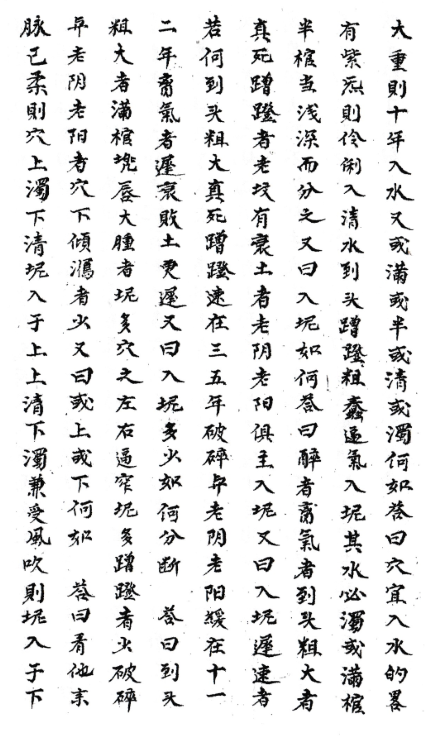 大重則十年入水又或滿或半或清或濁何如答曰穴宜入水的畧
有紫炁則伶俐入清水到头蹭蹬粗蠢逼氣入坭其水必濁或滿棺
半棺当浅深而分之又曰入坭如何答曰醉者窝氣者到头粗大者
真死蹭蹬者老坟有衰土者老阴老阳俱主入坭又曰入坭遲速者
若何到头粗大真死蹭蹬速在三五年破碎与老阴老阳緩在十一
二年窝氣者遲衰敗土更遲又曰入坭多少如何分断 答曰到头
粗大者滿棺塊唇大腫者坭多穴之左右逼窄坭多蹭蹬者少破碎
与老阴老阳者穴下傾瀉者少又曰或上或下何如 答曰看他来
脉已柔則穴上濁下清坭入于上上清下濁兼受風吹則坭入于下